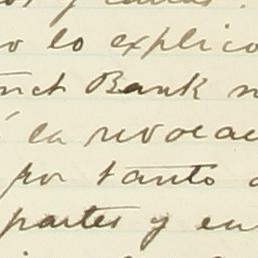 y
o lo explico
Bank
la revoca
por tanto
partes y en